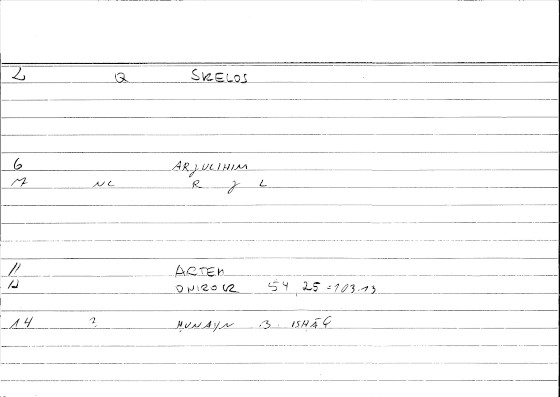 2 Q SKELOS
6 ARJULIHIM
7 NC R J L
11 ARTEM
12 ONIROCR 54, 25 = 103.13
14 ? HUNAYN B. ISHĀQ